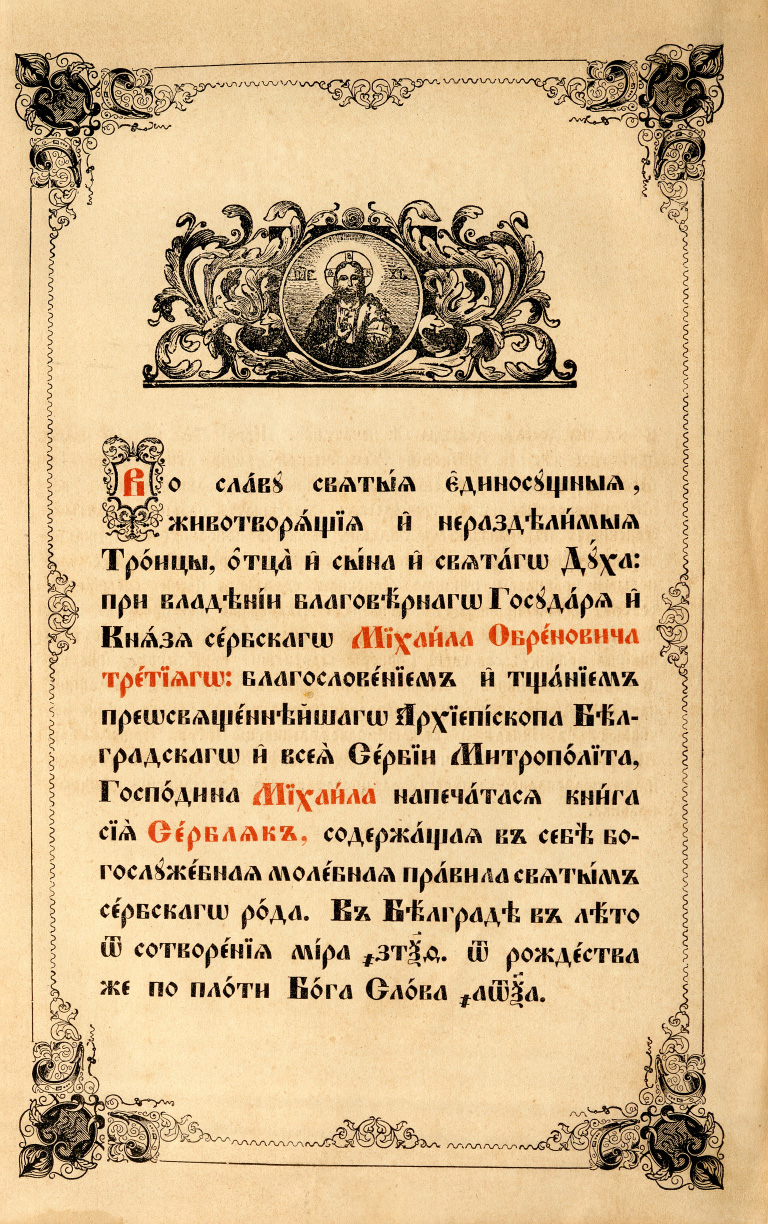 ІИС ХС
Во сла́вꙋ свѧты́ѧ є҆диносꙋщныѧ,
животворѧ́щїѧ и҆ нераздѣли́мыѧ
Тро́ицы, ѻ҆тца̀ и҆ сы́на и҆ свѧта́гѡ Дꙋ́ха:
при владѣ́нїи благовѣ́рнагѡ Госꙋда́рѧ и҆
Кнѧ́зѧ се́рбскагѡ Мїхаи́ла Обре́новича
тре́тїѧгѡ: благослове́нїемъ и҆ тща́нїемъ
преѡсвѧще́ннѣйшагѡ Архїепі́скопа Бѣ́л-
градскагѡ и҆ всеѧ̀ Се́рбїи Митропо́лїта,
Господи́на Мїхаи́ла напеча́тасѧ кни́га
сїѧ̀ Се́рблѧкъ, содержа́щаѧ въ себѣ̀ бо-
гослꙋже́бнаѧ моле́бнаѧ пра́вила свѧты́мъ
се́рбскагѡ ро́да. Въ Бѣ́лградѣ въ лѣ́то
ѿ сотворе́нїѧ мі́ра ҂зтѯ҃ѳ. ѿ рожде́ства
же по пло́ти Бо́га Сло́ва ҂аѿѯ҃а.